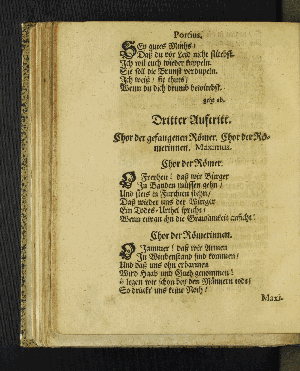 Porcius.
SEy gutes Muths /
Daß du vor Leid nicht stirbst.
Ich wil euch wieder koppeln.
Sie soll die Brunst verdupeln.
Ich weiß / sie thuts /
Wenn du dich drumb bewirbst.
geht ab.
Dritter Aufftritt.
Chor der gefangenen Römer. Chor der Rö-
merinnen. Maximus.
Chor der Römer.
O Freyheit! daß wir Bürger
In Banden müssen gehn /
Und stets in Furchten stehn /
Daß wieder uns der Würger
Ein Todes-Urthel spricht /
Wenn etwan ihn die Grausamkeit anficht!
Chor der Römerinnen.
O Jammer! daß wir Armen
In Witwenstand sind kommen /
Und daß uns ohn erbarmen
Wird Haab und Gueth genommen!
O legen wir schon bey den Männern todt /
So drückt uns keine Noth!
Maxi-